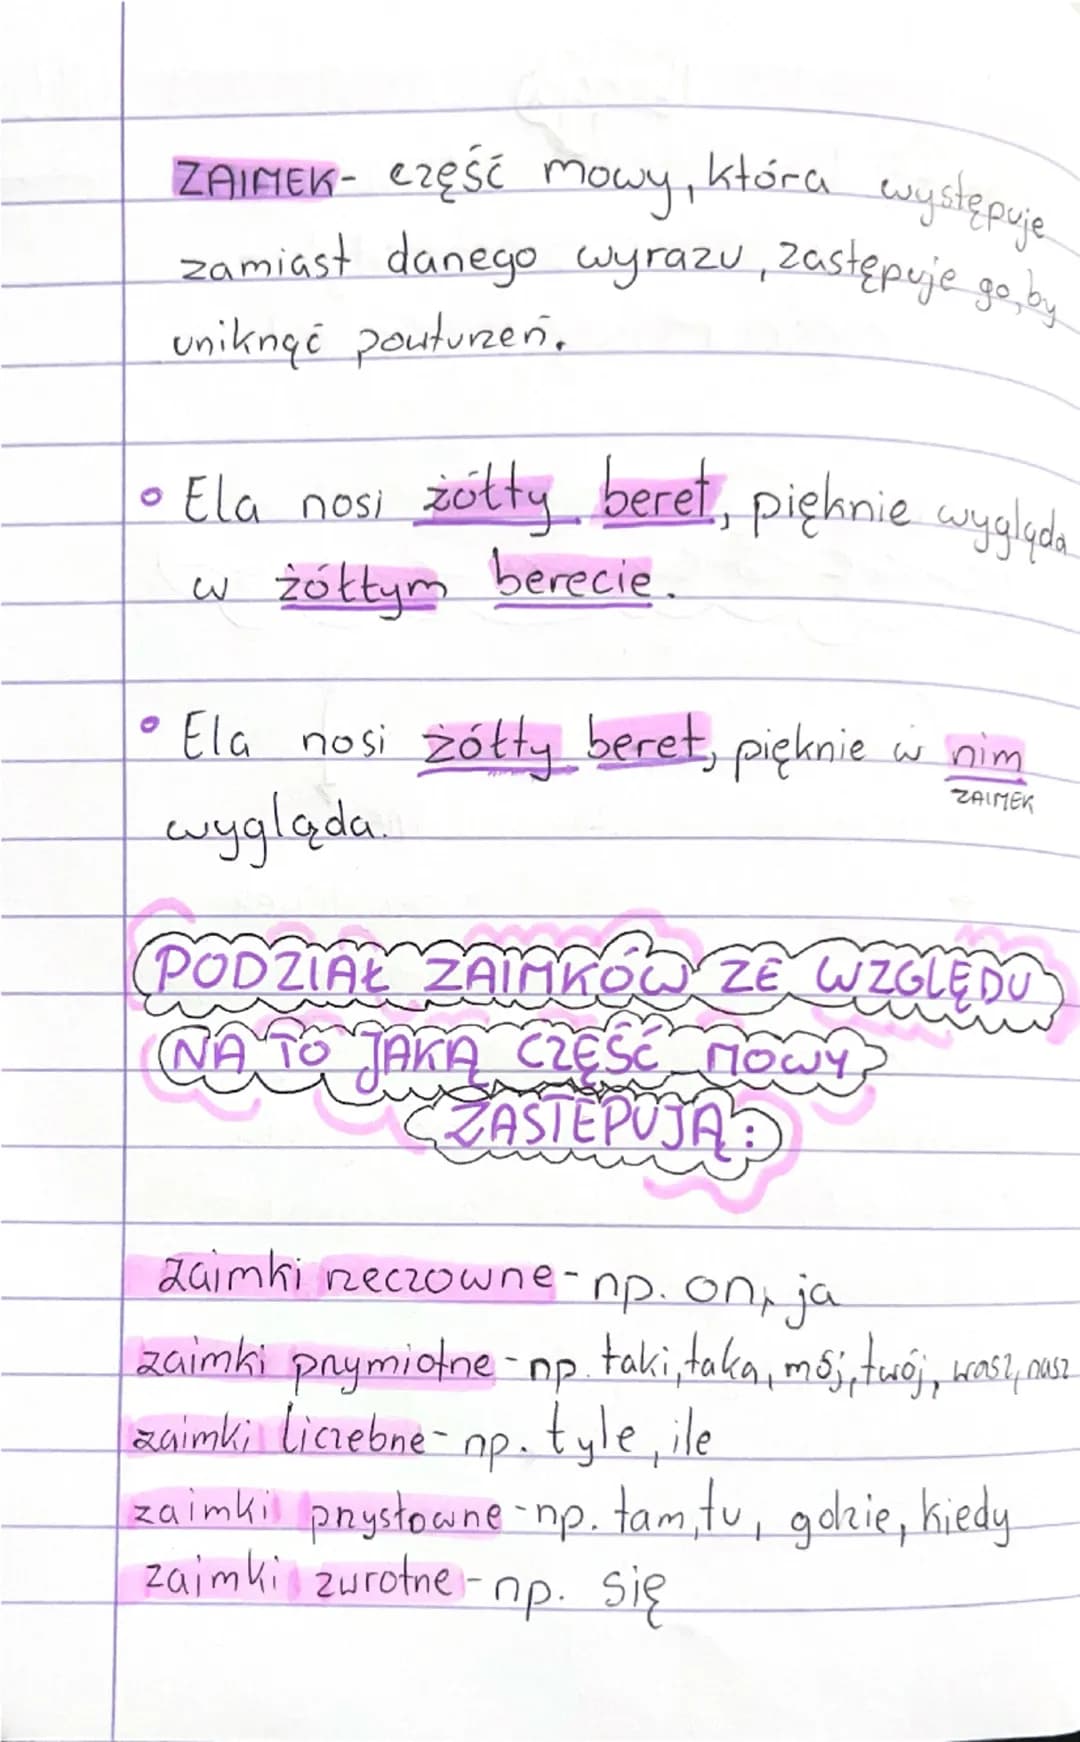 ZAIMEK- część mowy, która występuje
zamiast danego wyrazu, zastępuje go, by
uniknąć powtórzeń.
• Ela nosi żółty beret, pięknie wygląda
w żółtym berecie.
• Ela nosi żółty beret, pięknie w nim
ZAIMEK
wygląda.
PODZIAŁ ZAIMKÓW ZE WZGLĘDU
NA TO JAKĄ CZĘŚĆ MOWY
ZASTĘPUJĄ:
zaimki rzeczowne- np. on, ja
zaimki przymiotne - np. taki, taka, mój, twój, wasz, nasz
zaimki liczebne- np. tyle, ile
zaimki przysłowne - np. tam, tu, gdzie, kiedy
zaimki zwrotne - np. się